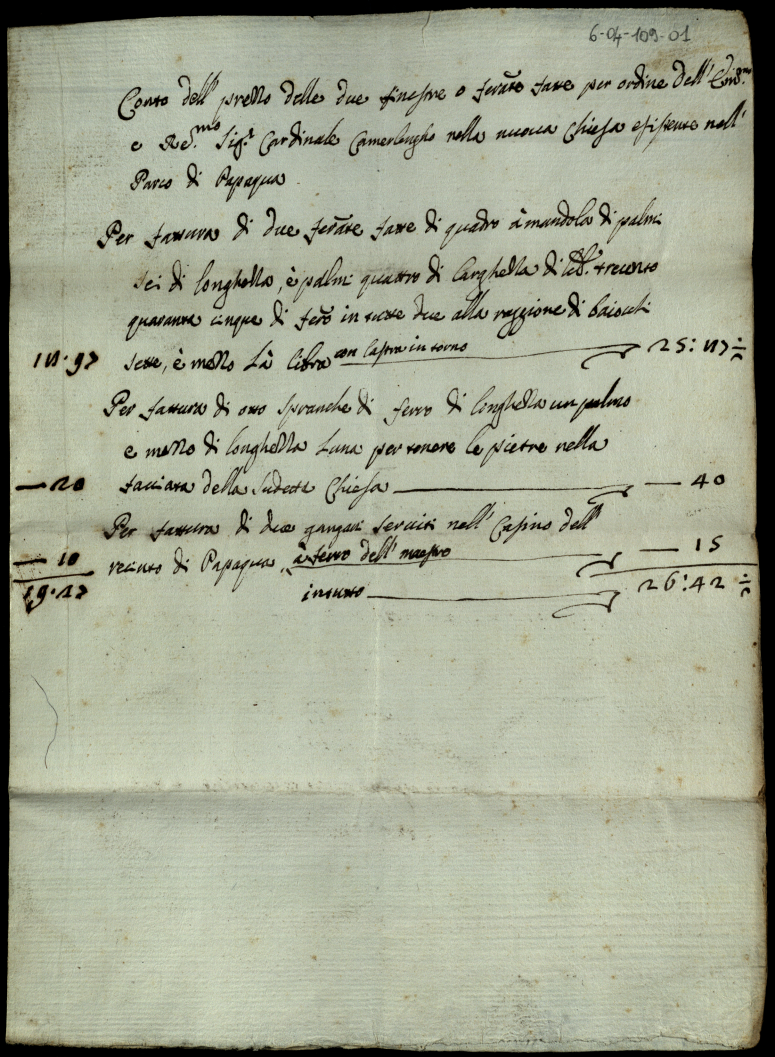 6-04-109-01
Conto dell' prezzo delle due finestre o ferate fatte per ordine dell' Em.mo
e Re.mo Sig.r Cardinale Camerlengho nella nuova Chiesa esistente nell'
Parco di Papaqua
Per fattura di due ferate fatte di quadro à mandola di palmi
sei di longhezza, è palmi quattro di larghezza di lib. trecento
quaranta cinque di fero in tutte due alla raggione di baiochi
sette, è mezzo la libra con lastra in torno 25:
Per fattura di otto spranche di ferro di longhezza un palmo
e mezzo di longhezza l'una per tenere le pietre nella
— 20 faciata della sudetta Chiesa — 40
Per fattura di due gangani serviti nell' Casino dell'
— 10 recinto di Papaqua, à ferro dell' mastro — 15
in tutto 26:42